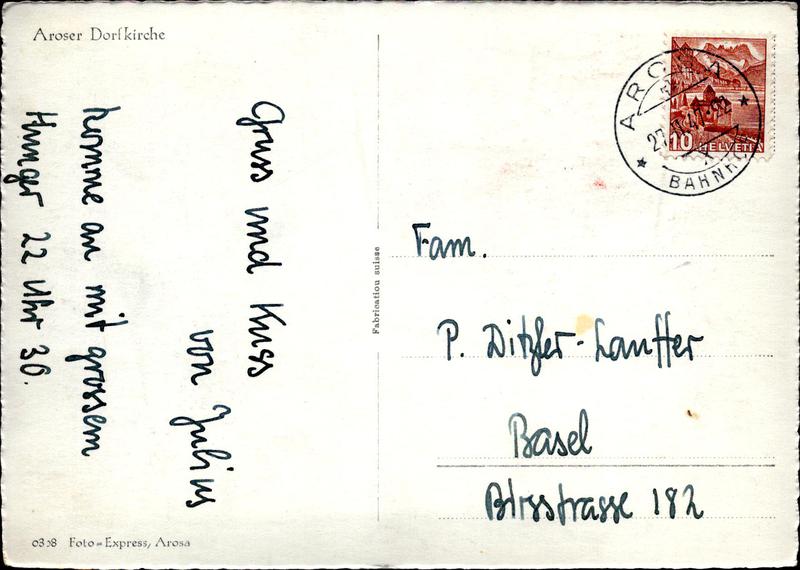 Aroser Dorfkirche
Gruss und Kuss
von Julius
Komme an mit grossem
Hunger 22 Uhr 30.
0358 Foto-Express, Arosa
Fabrication suisse
AROSA
BAHNHOF
10 HELVETIA
Fam.
P. Ditzler-Lauffer
Basel
182